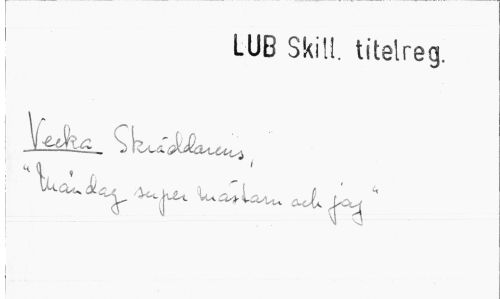 LUB Skill. titelreg.
Vecka Skräddarens,
"Måndag super mästarn och jag"